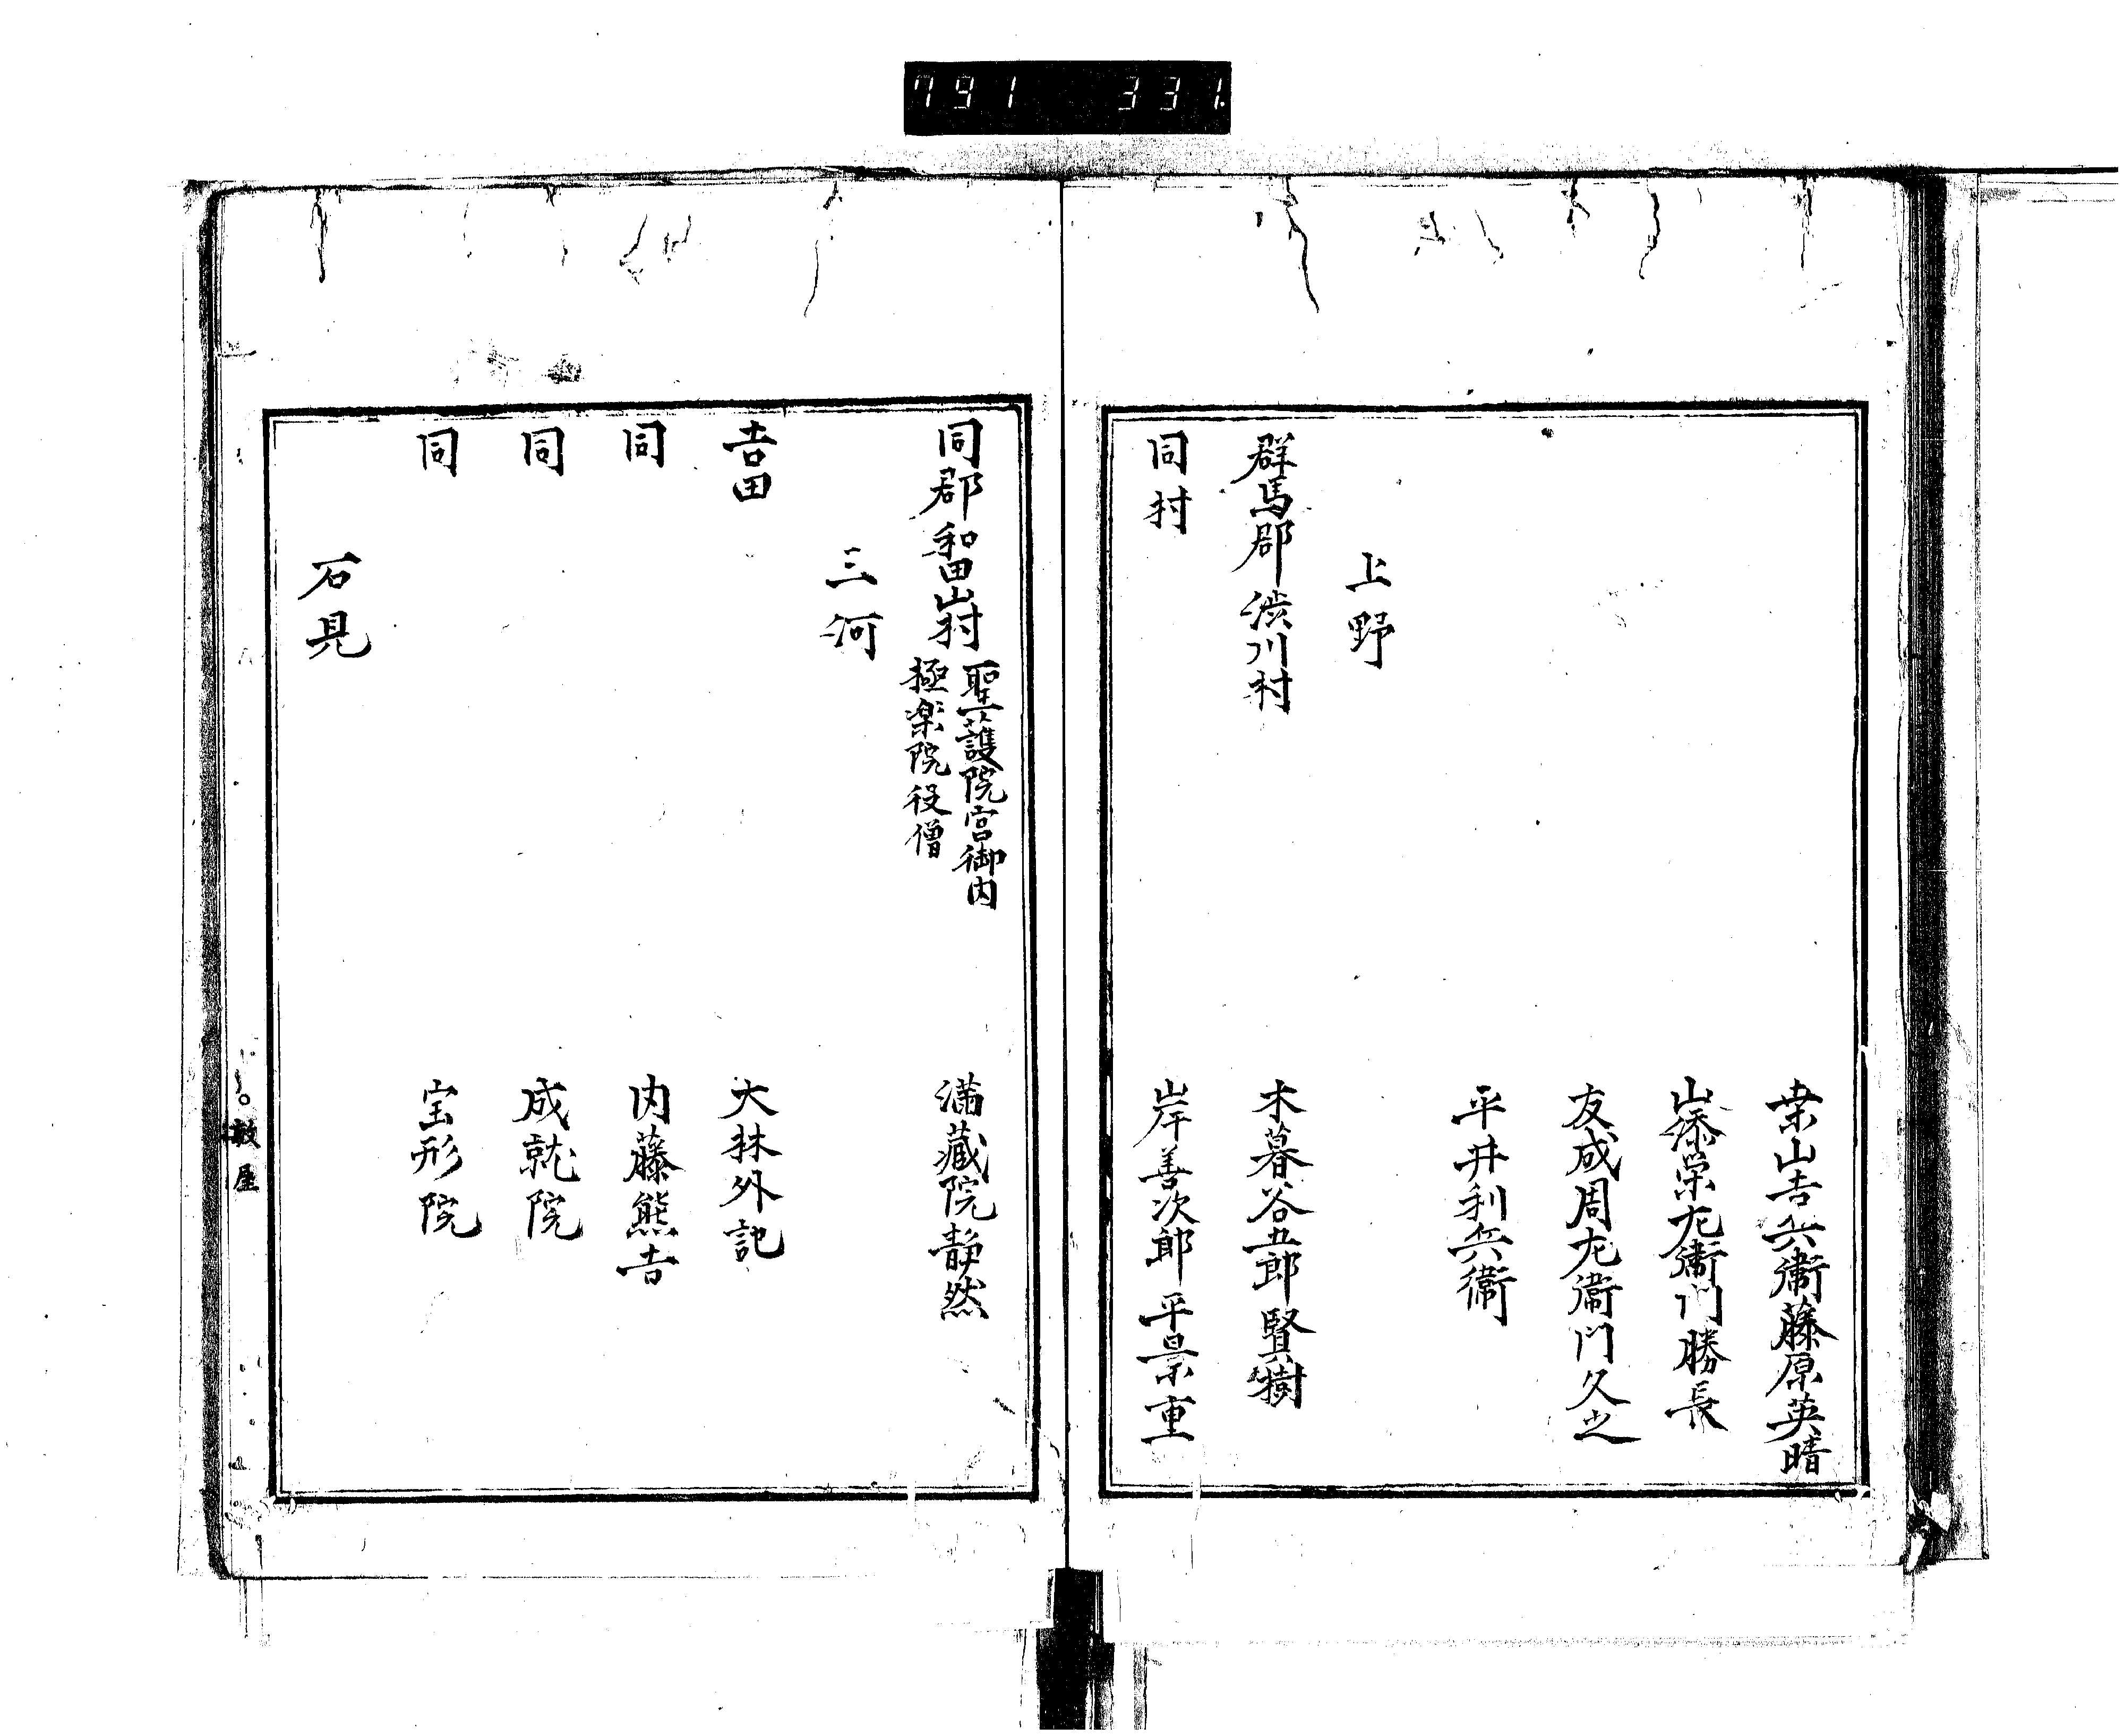 791 331
桒山吉兵衞藤原英晴
山添榮左衞門勝長
友成周左衞門久之
平井利兵衞
上野
群馬郡渋川村 木暮谷五郎賢樹
同村 岸善次郎平景重
同郡和田山村 聖護院宮御内 極楽院役僧 満蔵院静然
三河
吉田 大林外記
同 内藤熊吉
同 成就院
同 宝形院
石見